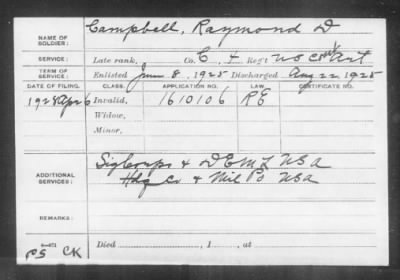 NAME OF SOLDIER: Campbell, Raymond D
SERVICE: Late rank, Co. C + Reg't US Art
TERM OF SERVICE: Enlisted June 8, 1925 Discharged Aug 22, 1925
DATE OF FILING. CLASS. APPLICATION NO. LAW. CERTIFICATE NO.
1928 Apr 6 Invalid, 1610106 RE
Widow,
Minor,
ADDITIONAL SERVICES: Sig Corps & DEML USA
Hdq Co & Mil Po USA
REMARKS:
Died , 1 , at
PS CK